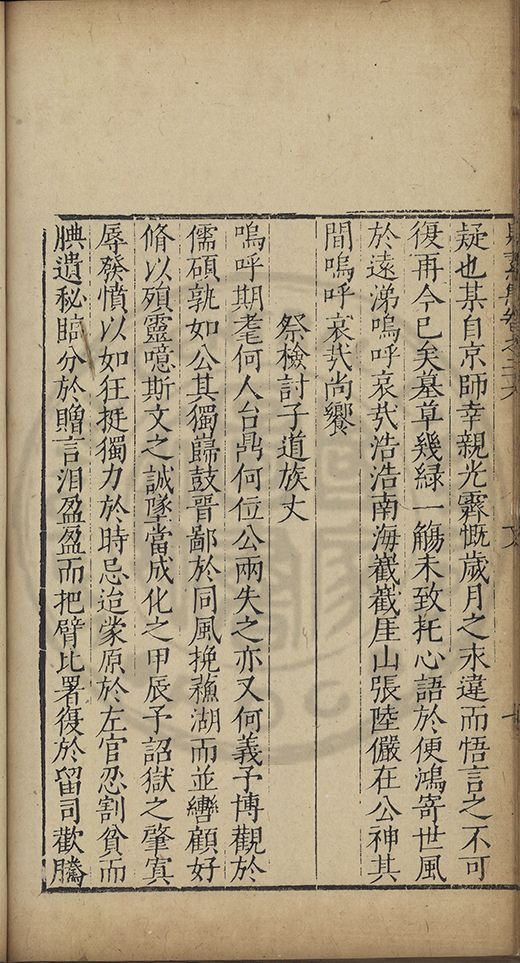 疑也某自京師幸親光霽慨歲月之永違而悟言之不可
復再今已矣墓草幾綠一觴未致托心語於便鴻寄世風
於遠涕嗚呼哀㢤浩浩南海巀巀厓山張陸儼在公神其
間嗚呼哀㢤尚饗
祭檢討子道族丈
嗚呼期耄何人台鼎何位公兩失之亦又何義予博觀於
儒碩孰如公其獨巋鼓晉鄙於同風挽蘓湖而並轡顧好
脩以殞靈噫斯文之誠墜當成化之甲辰予詔獄之肇寘
辱發憤以如狂挺獨力於時忌迨蒙原於左官忍割貧而
腆遺秘臨分於贈言泪盈盈而把臂比署復於留司歡騰